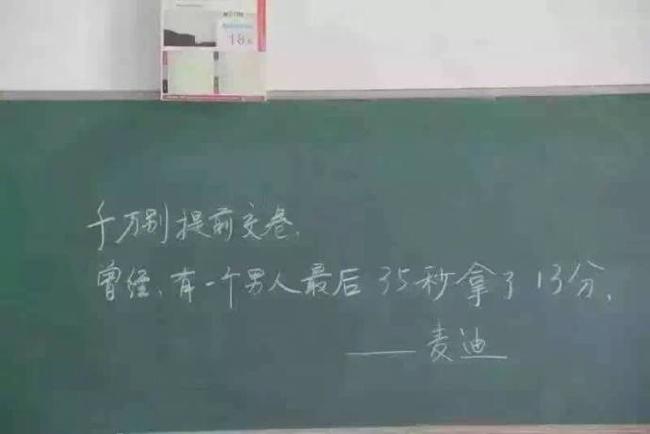 18
千万别提前交卷,
曾经、有一个男人最后35秒拿了13分,
——麦迪